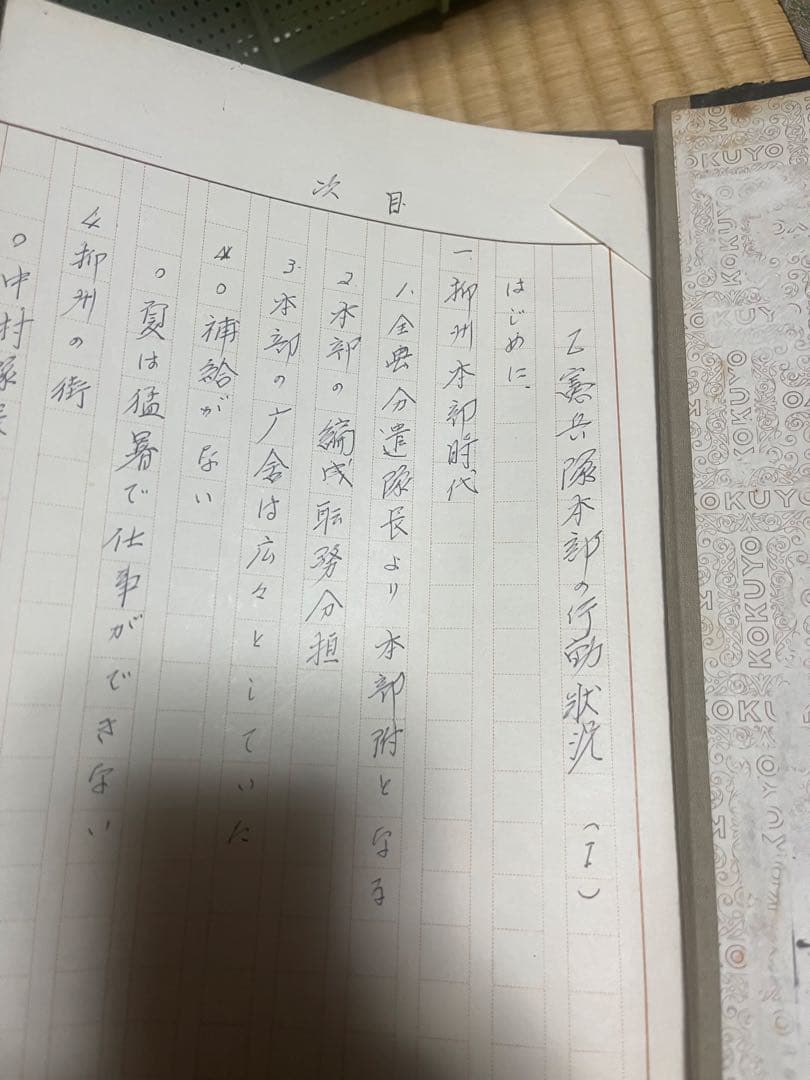 目次
乙憲兵隊本部の行動状況 (I)
はじめに
一 柳州本部時代
1. 全県分遣隊長より本部附となる
2 本部の編成職務分担
3. 本部の庁舎は広々としていた
○補給がない
○夏は猛暑で仕事ができない
4 柳州の街
○中村隊長
KOKUYO